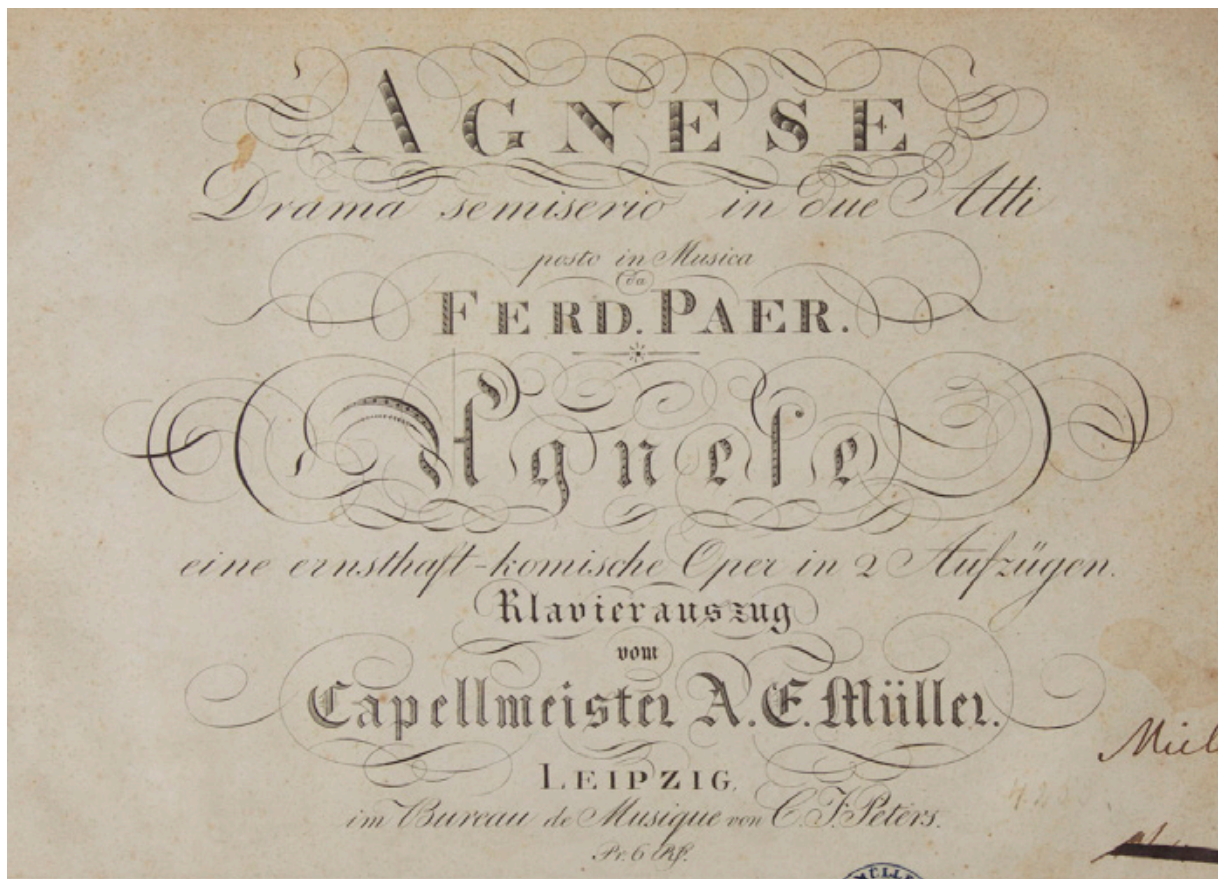 AGNESE
Drama semiserio in due Atti
posto in Musica
da
FERD. PAER.
Agneſe
eine ernsthaft-komische Oper in 2 Aufzügen.
Klavierauszug
vom
Capellmeister A. E. Müller.
LEIPZIG,
im Bureau de Musique von C. F. Peters.
Pr. 6 Rf.